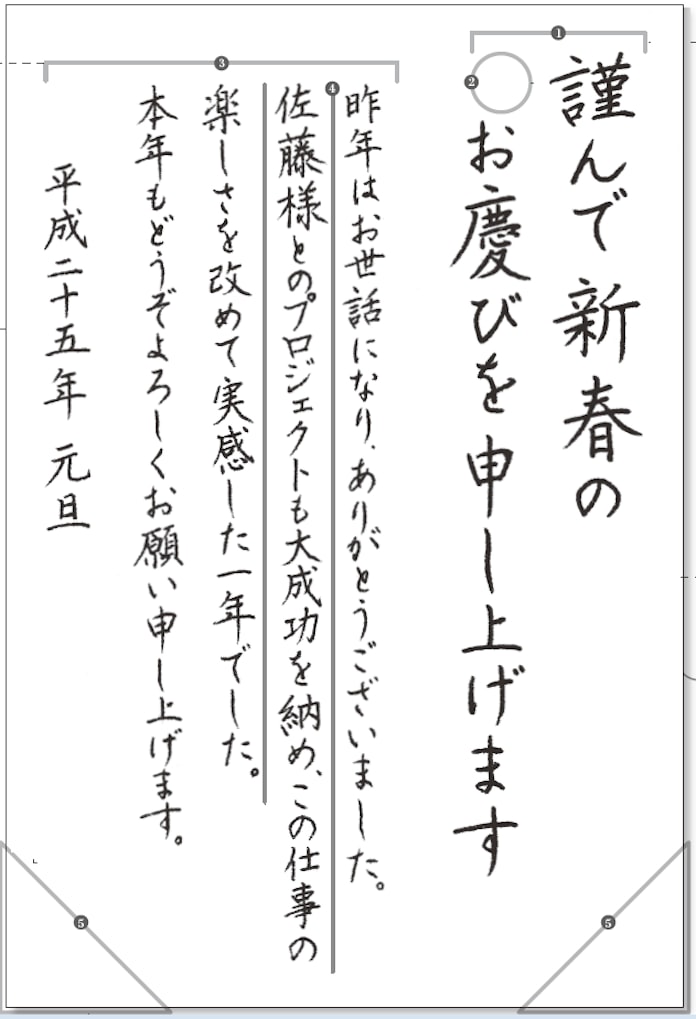 謹んで新春の
お慶びを申し上げます
昨年はお世話になり、ありがとうございました。
佐藤様とのプロジェクトも大成功を納め、この仕事の
楽しさを改めて実感した一年でした。
本年もどうぞよろしくお願い申し上げます。
平成二十五年 元旦
1
2
3
4
5
5